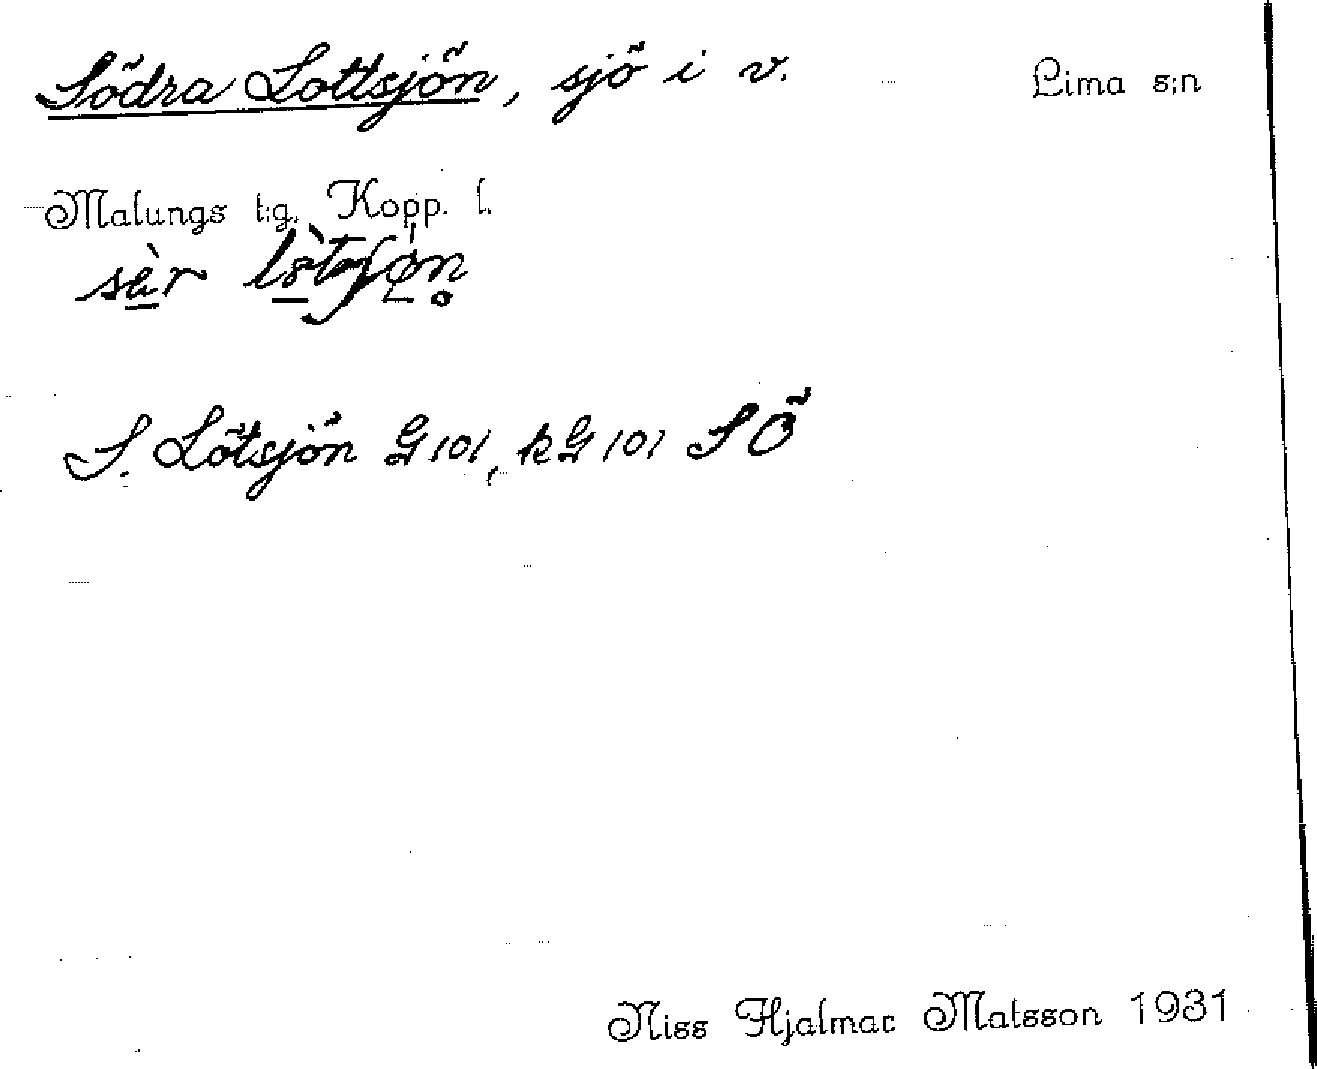 Södra Lottsjön, sjö i v. Lima s:n
Malungs t:g. Kopp. l.
S. Lötsjön G 101, kG 101 SÖ
Niss Hjalmar Matsson 1931